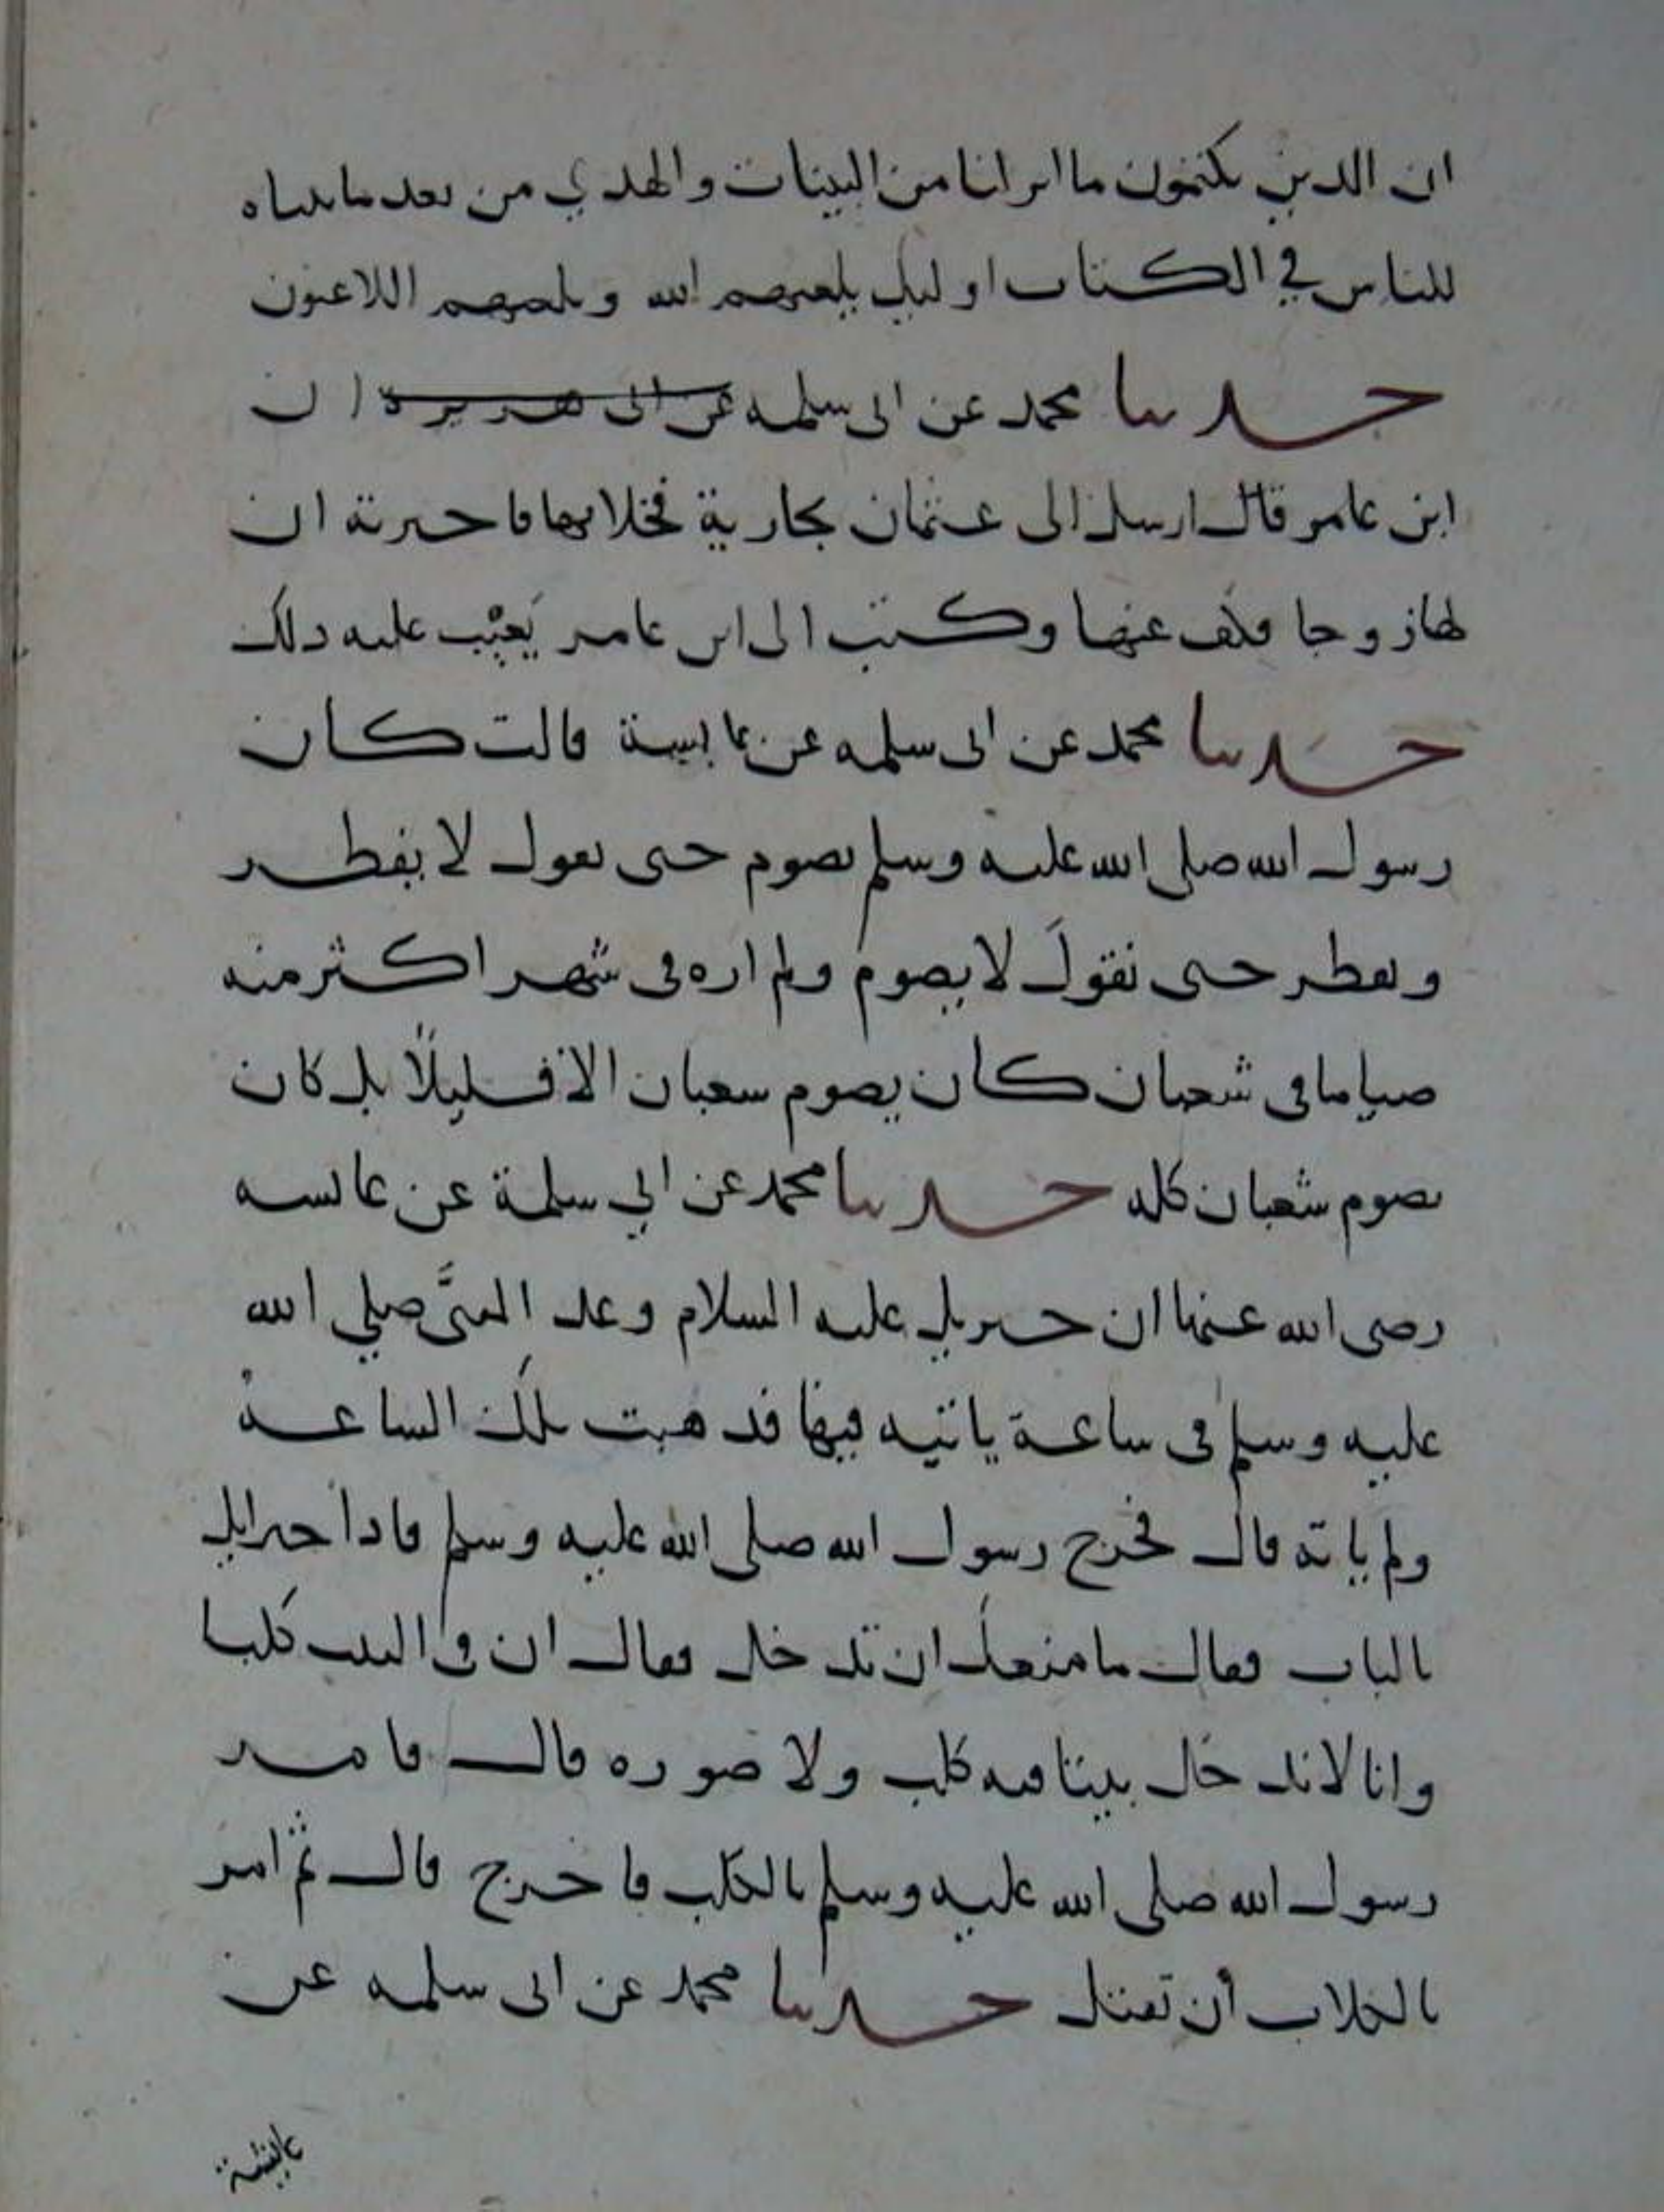 ان الذين يكتمون ما انزلنا من البينات والهدي من بعد ما بيناه
للناس في الكتاب اوليك يلعنهم الله ويلعنهم اللاعنون
حدثنا محمد عن ابى سلمه عن ابى هريرة ان
ابن عامر قال ارسل الى عثمان بجارية فخلا بها فاخبرته ان
لها زوجا فكف عنها وكتب الى ابن عامر يَعيْب عليه ذلك
حدثنا محمد عن ابى سلمه عن عايشة قالت كان
رسول الله صلى الله عليه وسلم يصوم حتى نقول لا يفطر
ويفطر حتى نقولَ لا يصوم ولم اره فى شهر اكثر منه
صياما فى شعبان كان يصوم شعبان الا قليلًا بل كان
يصوم شعبان كله حدثنا محمد عن ابي سلمة عن عائشه
رضى الله عنها ان جبريل عليه السلام وعد النبىَّ صلي الله
عليه وسلم فى ساعة ياتيه فيها فذهبت تلك الساعة
ولم ياته قال فخرج رسول الله صلى الله عليه وسلم فاذا جبرايل
بالباب فقال ما منعك ان تدخل فقال ان فى البيت كلبا
وانا لا ندخل بيتا فيه كلب ولا صوره قال فامر
رسول الله صلى الله عليه وسلم بالكلب فاخرج قال ثم امر
بالكلاب أن تقتل حدثنا محمد عن ابى سلمه عن
عايشة